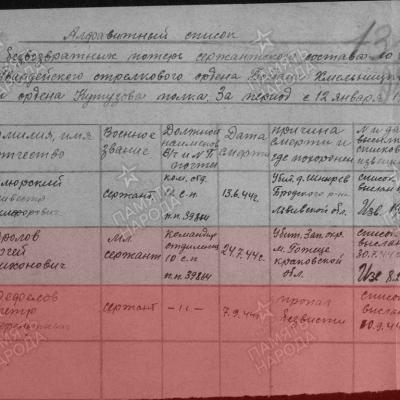 Алфавитный список
безвозвратных потерь сержантского состава 10
гвардейского стрелкового ордена Богдана Хмельницк
и ордена Кутузова полка. За период с 12 января 1
амилия, имя
отчество
Военное
звание
Должност
наименов
в/ч и № п
почты
Дата
смерти
причина
смерти и
где похоронен
№ и да
высылк
списка
извещ
сержант
ком. отд.
с.п.
п.п. 39864
13.6.44г.
Убит д.
Бродского р-на
Львивской обл.
список
выслан
Изв.
ролов
ргей
ихонович
Мл.
сержант
Командир
отделения
10 с.п.
п.п. 39864
24.7.44г.
Убит. Зап. окр.
краковской
обл.
список
выслан
30.7.44
Изв
етр
сержант
–״–
7.9.44г.
пропал
безвисти
список
выслан
30.9.44
ПАМЯТЬ
НАРОДА